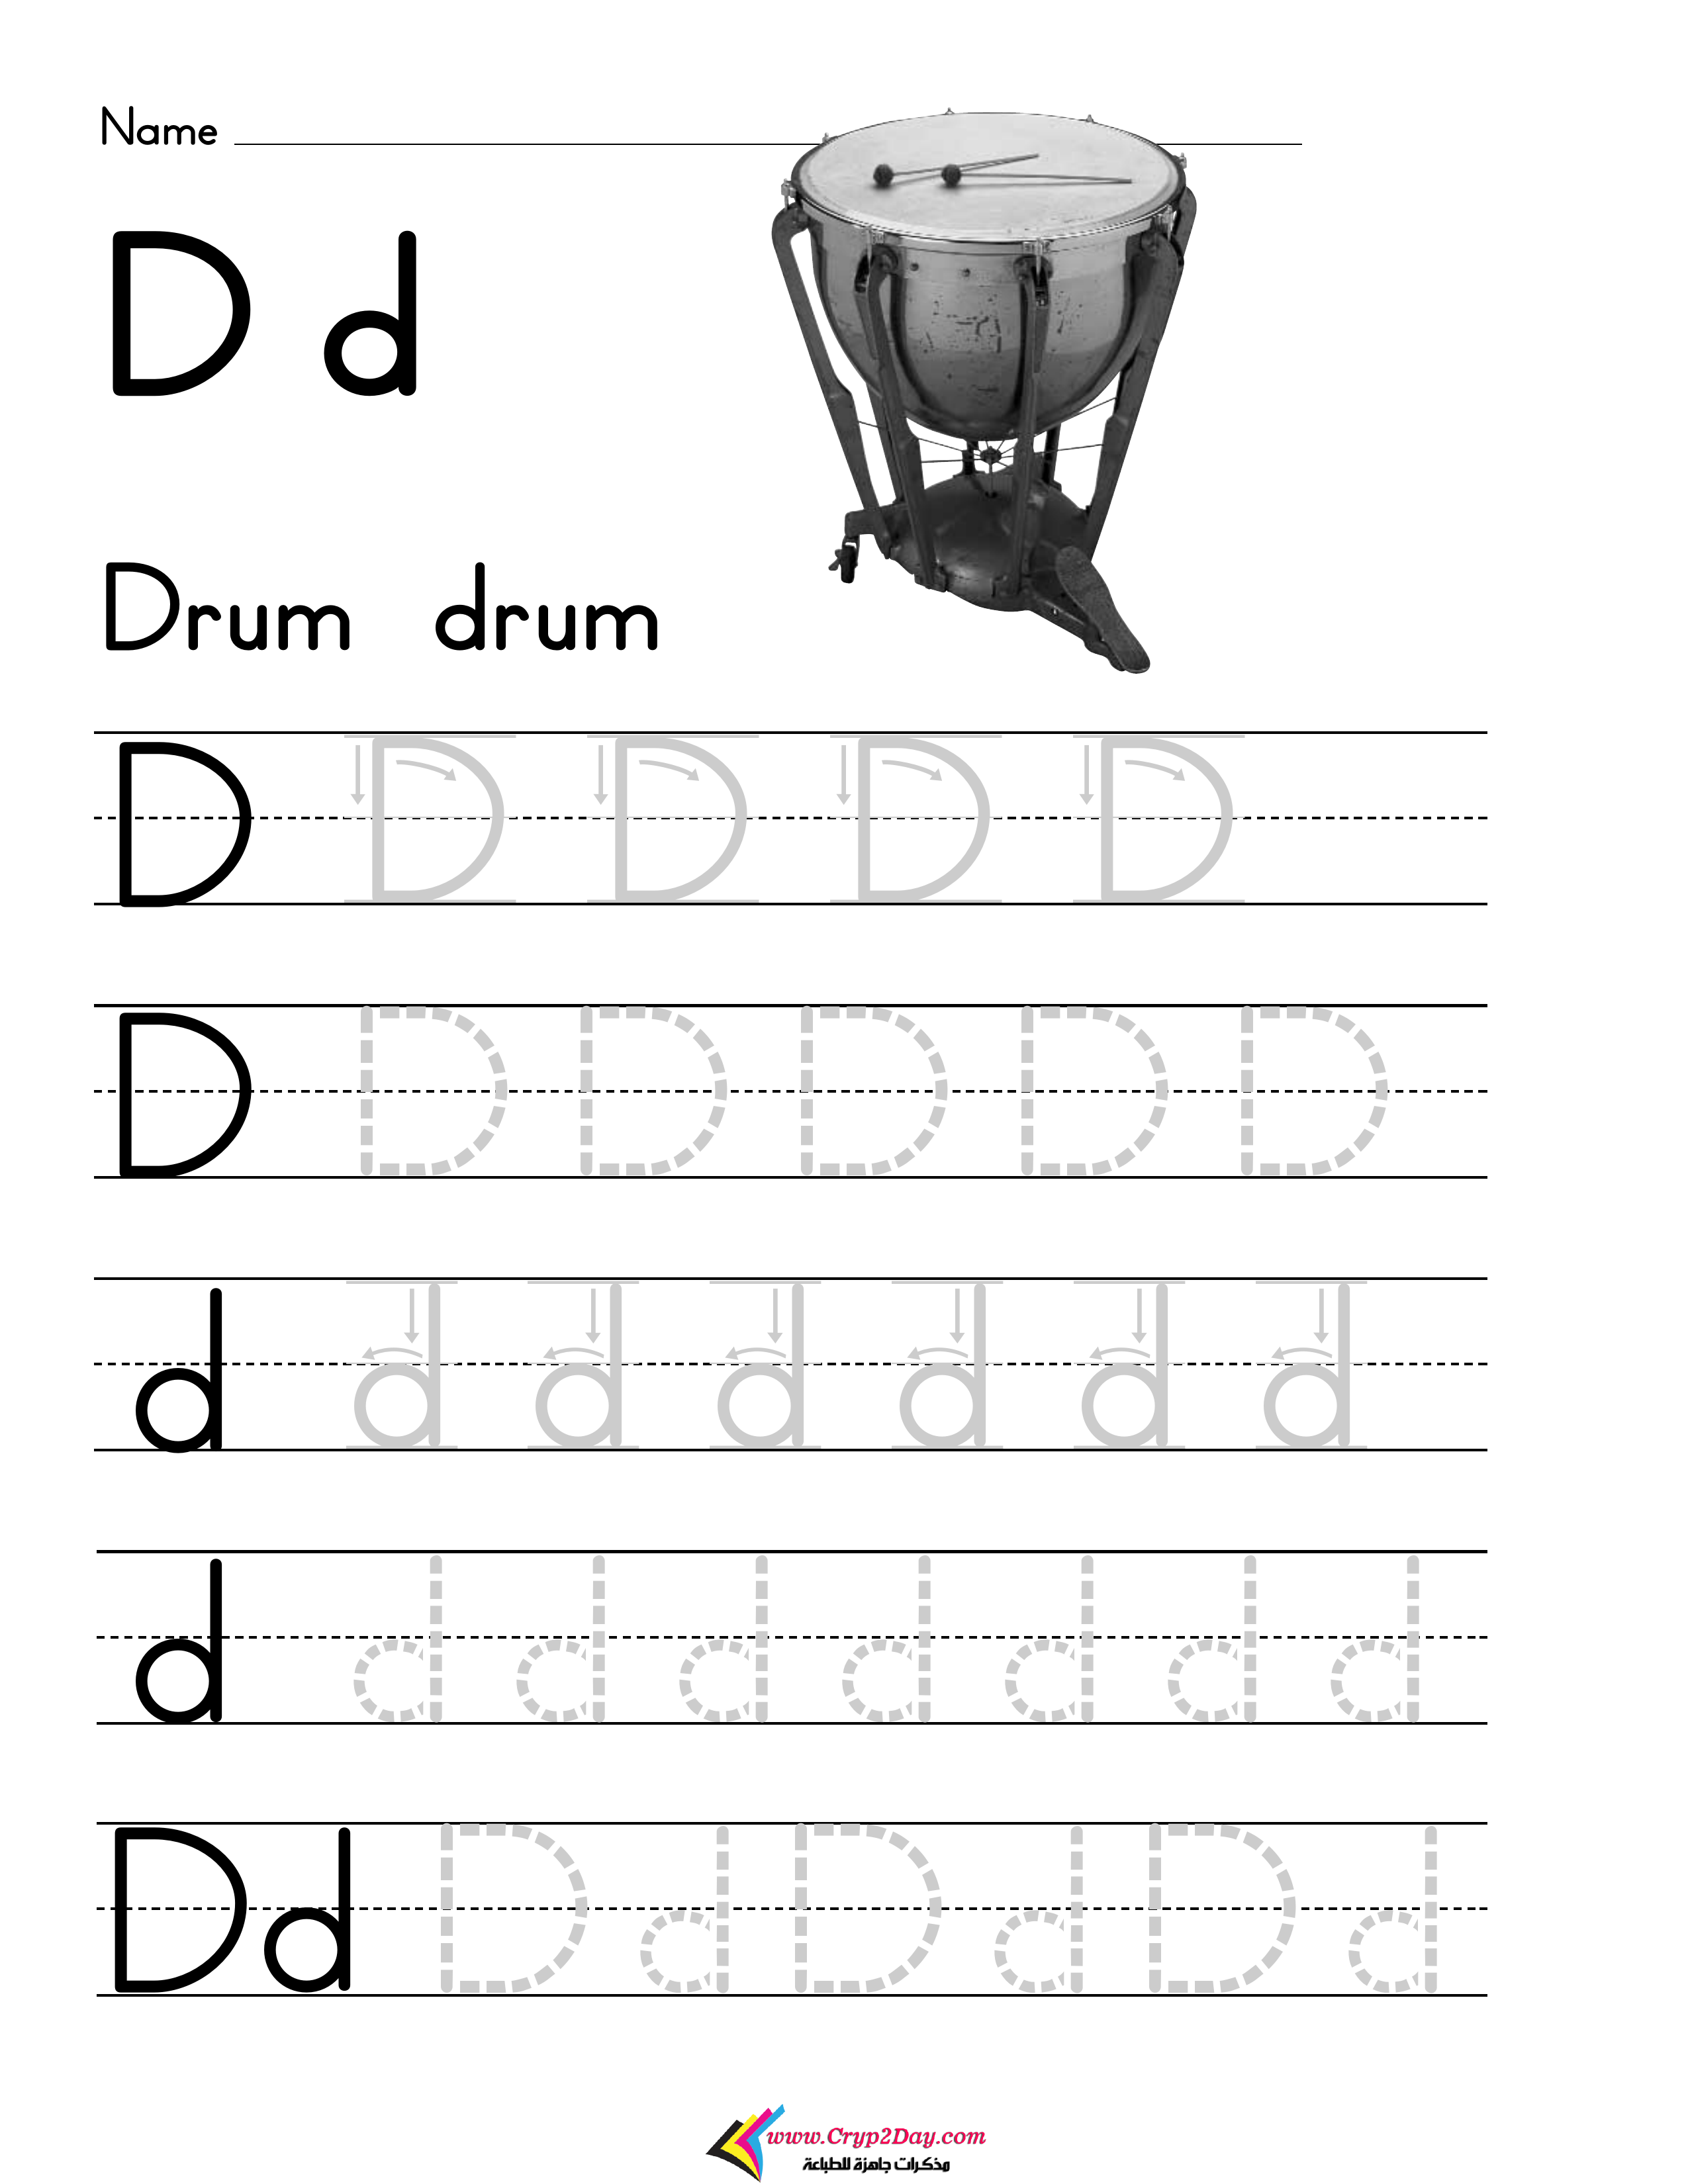 Name
D d
Drum drum
D D D D D
D D D D D D
d d d d d d d
d d d d d d d d
Dd D d D d D d
www.Cryp2Day.com
مذكرات جاهزة للطباعة